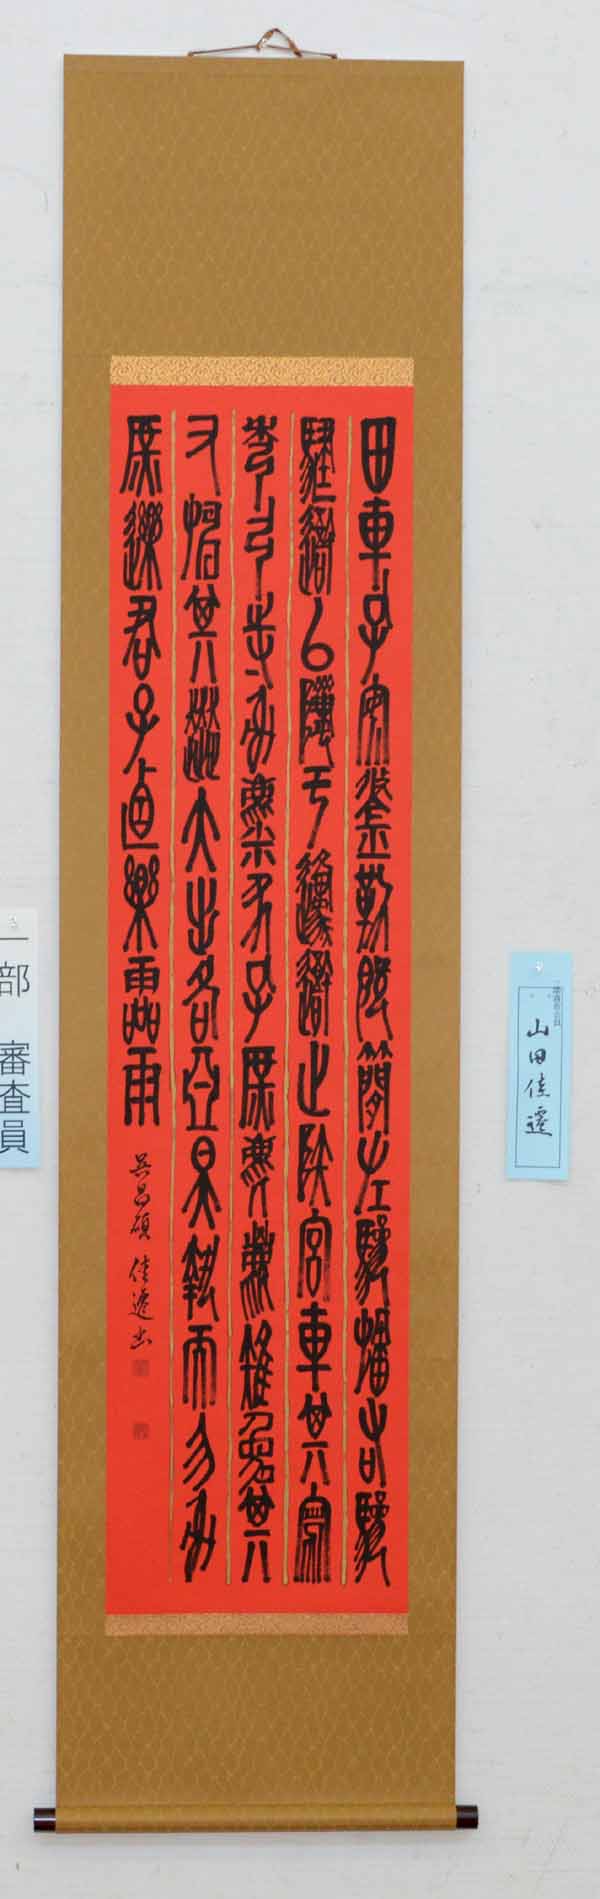 田車孔安鋚勒馵簡左驂旛右驂
騝以隮于邍止陸宮車其寫
秀弓寺射麋豕孔庶麀鹿雉兔其
又旃其大出各亞昊執而勿射
庶君子逌樂霝雨
呉昌碩 佳遷
山田佳遷
一部 審査員